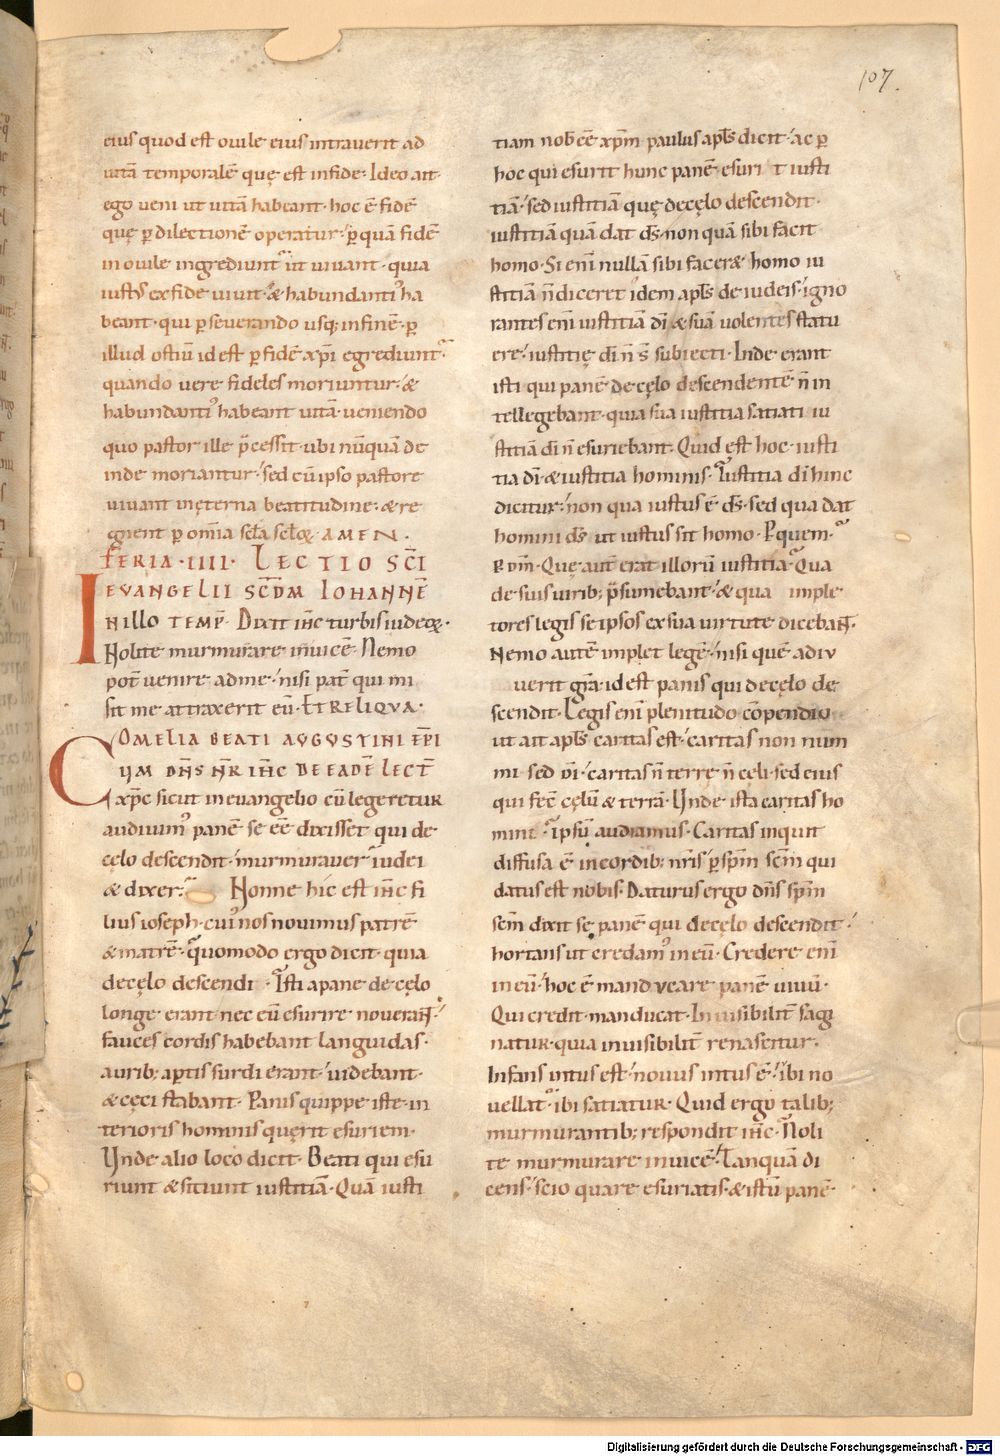 107.
eius quod est ouile eius intrauerit ad
uitā temporalē quę est in fide· Ideo ait·
ego ueni ut uitā habeant· hoc ē fidē
quę p̄ dilectionē operatur· p̄ quā fidē
in ouile ingrediunt᷑ ut uiuant· quia
iustꝰ ex fide uiuit· & habundantiꝰ ha
beant· qui p̄seuerando usq; in finē· p̄
illud ostiū id est p̄ fidē xp̄i egrediunt᷑·
quando uere fideles moriuntur· &
habundantiꝰ habeant uitā· ueniendo
quo pastor ille p̄cessit· ubi nūquā de
inde moriantur· sed cū ipso pastore
uiuant in ęterna beatitudine· & re
gnent p̄ om̄ia sc̄la sc̄loꝝ· AMEN·
FERIA·IIII· LECTIO SC̄I
EVANGELII SCD̄M IOHANNĒ
INillo TEMP̄· Dixit ih̄c turbis iudeoꝝ·
Nolite murmurare inuicē· Nemo
pot̄ uenire ad me· nisi pat̄ qui mi
sit me attraxerit eū· ET RELIQVA·
OMELIA BEATI AVGVSTINI EP̄I
CVM DN̄S N̄R IH̄C DE EADĒ LECT̄
xp̄c sicut in euangelio cū legeretur
audiuimꝰ panē se eē dixisset qui de
cęlo descendit· murmurauer᷑ iudei
& dixer᷑· Nonne hic est ih̄c fi
lius ioseph· cuiꝰ nos nouimus patrē
& matrē· quomodo ergo dicit· quia
de cęlo descendi· Isti a pane de cęlo
longe erant nec eū esurire nouerant·
fauces cordis habebant languidas·
aurib; ap̄tis surdi erant· uidebant·
& cęci stabant· Panis quippe iste· in
terioris hominis quęrit esuriem·
Unde alio loco dicit· Beati qui esu
riunt & sitiunt iustitiā· Quā iusti
tiam nob̄ eē xp̄m paulus apl̄s dicit· ac p̄
hoc qui esurit hunc panē· esuri t iusti
tiā· sed iustitiā quę de cęlo descendit·
iustitiā quā dat ds̄· non quā sibi facit
homo· Si eni nullā sibi facer& homo iu
stitiā n̄ diceret idem apl̄s de iudeis· igno
rantes eni iustitiā dī & suā uolentes statu
ere· iustitię dī n̄ s̄ subiecti· Inde erant
isti qui panē de cęlo descendentē n̄ in
tellegebant· quia sua iustitia satiati iu
stitiā dī n̄ esuriebant· Quid est hoc· iusti
tia dī· & iustitia hominis· Iustitia dī hinc
dicitur· non qua iustus ē ds̄· sed qua dat
homini ds̄· ut iustus sit homo· P̄ quem·
p̄ dm̄· Quę aut̄ erat illorū iustitia· Qua
de suis uirib; p̄sumebant· & qua imple
tores legis se ipsos ex sua uirtute dicebant·
Nemo autē implet legē· nisi quē adiu
uerit gr̄a· id est panis qui de cęlo de
scendit· Legis eni plenitudo cōpendio
ut ait apl̄s caritas est· caritas non num
mi· sed dī· caritas n̄ terrę n̄ celi· sed eius
qui fec̄ cęlū & terrā· Unde ista caritas ho
mini· ipsū audiamus· Caritas inquit
diffusa ē in cordib; nr̄is p̄ spm̄ scm̄ qui
datus est nobis· Daturus ergo dn̄s spm̄
scm̄ dixit se panē qui de cęlo descendit·
hortans ut credamꝰ in eū· Credere eni
in eū· hoc ē manducare panē uiuū·
Qui credit· manducat· Inuisibilit̄ sagi
natur· quia inuisibilit̄ renascitur·
Infans intus est· nouus intus ē· ibi no
uellat᷑ ibi satiatur· Quid ergo talib;
murmurantib; respondit ih̄c· Noli
te murmurare inuicē· Tanquā di
cens· scio quare esuriatis· & istū panē·
Digitalisierung gefördert durch die Deutsche Forschungsgemeinschaft - DFG